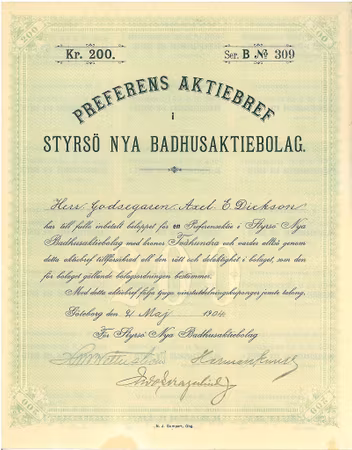 200 200
Kr. 200. Ser. B. No 309
PREFERENS AKTIEBREF
i
STYRSÖ NYA BADHUSAKTIEBOLAG.
Herr Godsegaren Axel E. Dickson
har till fullo inbetalt beloppet för en Preferensaktie i Styrsö Nya
Badhusaktiebolag med kronor Tvåhundra och varder alltså genom
detta aktiebref tillförsäkrad all den rätt och delaktighet i bolaget, som den
för bolaget gällande bolagsordningen bestämmer.
Med detta aktiebref följa tjugo utdelningskuponger jemte talong.
Göteborg den 21 Maj 1904
För Styrsö Nya Badhusaktiebolag
200 200